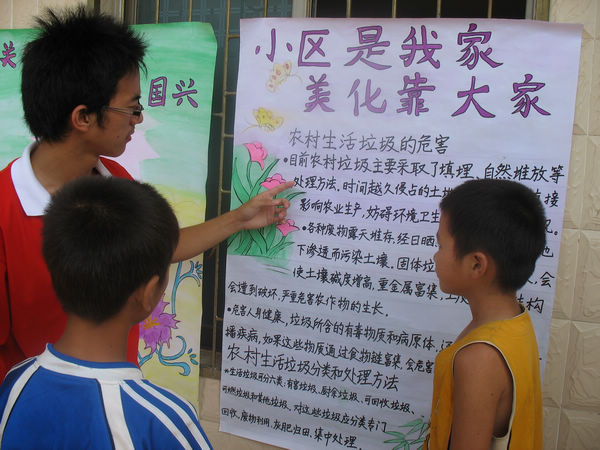 关
国兴
小区是我家
美化靠大家
农村生活垃圾的危害
•目前农村垃圾主要采取了填埋、自然堆放等
处理方法,时间越久侵占的土地 接
影响农业生产,妨碍环境卫生
•各种废物露天堆存,经日晒 地
下渗透而污染土壤。固体垃 会
使土壤碱度增高,重金属富集, 结构
会遭到破坏,严重危害农作物的生长。
•危害人身健康,垃圾所含的有毒物质和病原体,
播疾病,如果这些物质通过食物链富集,会危害
农村生活垃圾分类和处理方法
•生活垃圾可分类:有害垃圾、厨余垃圾、可回收垃圾、
可燃垃圾和其他垃圾,对这些垃圾应分类专门
回收、废物利用、灰肥归田、集中处理。